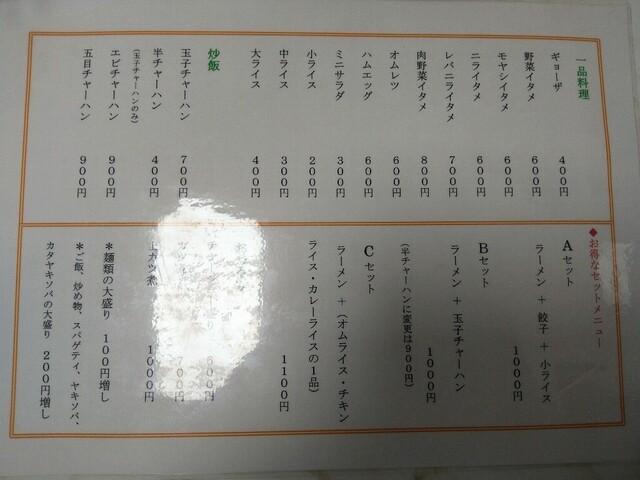 一品料理
ギョーザ　４００円
野菜イタメ　６００円
モヤシイタメ　６００円
ニライタメ　６００円
レバニライタメ　７００円
肉野菜イタメ　８００円
オムレツ　６００円
ハムエッグ　６００円
ミニサラダ　３００円
小ライス　２００円
中ライス　３００円
大ライス　４００円
炒飯
玉子チャーハン　７００円
半チャーハン　４００円
（玉子チャーハンのみ）
エビチャーハン　９００円
五目チャーハン　９００円
◆お得なセットメニュー
Ａセット
ラーメン ＋ 餃子 ＋ 小ライス
１０００円
Ｂセット
ラーメン ＋ 玉子チャーハン
１０００円
（半チャーハンに変更は９００円）
Ｃセット
ラーメン ＋（オムライス・チキン
ライス・カレーライスの１品）
１１００円
６００円
７００円
上カツ煮　１０００円
＊麺類の大盛り　１００円増し
＊ご飯、炒め物、スパゲティ、ヤキソバ、
カタヤキソバの大盛り　２００円増し